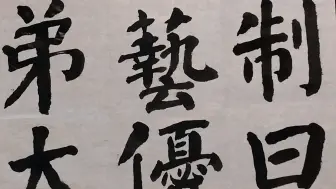 制曰
藝優
弟大